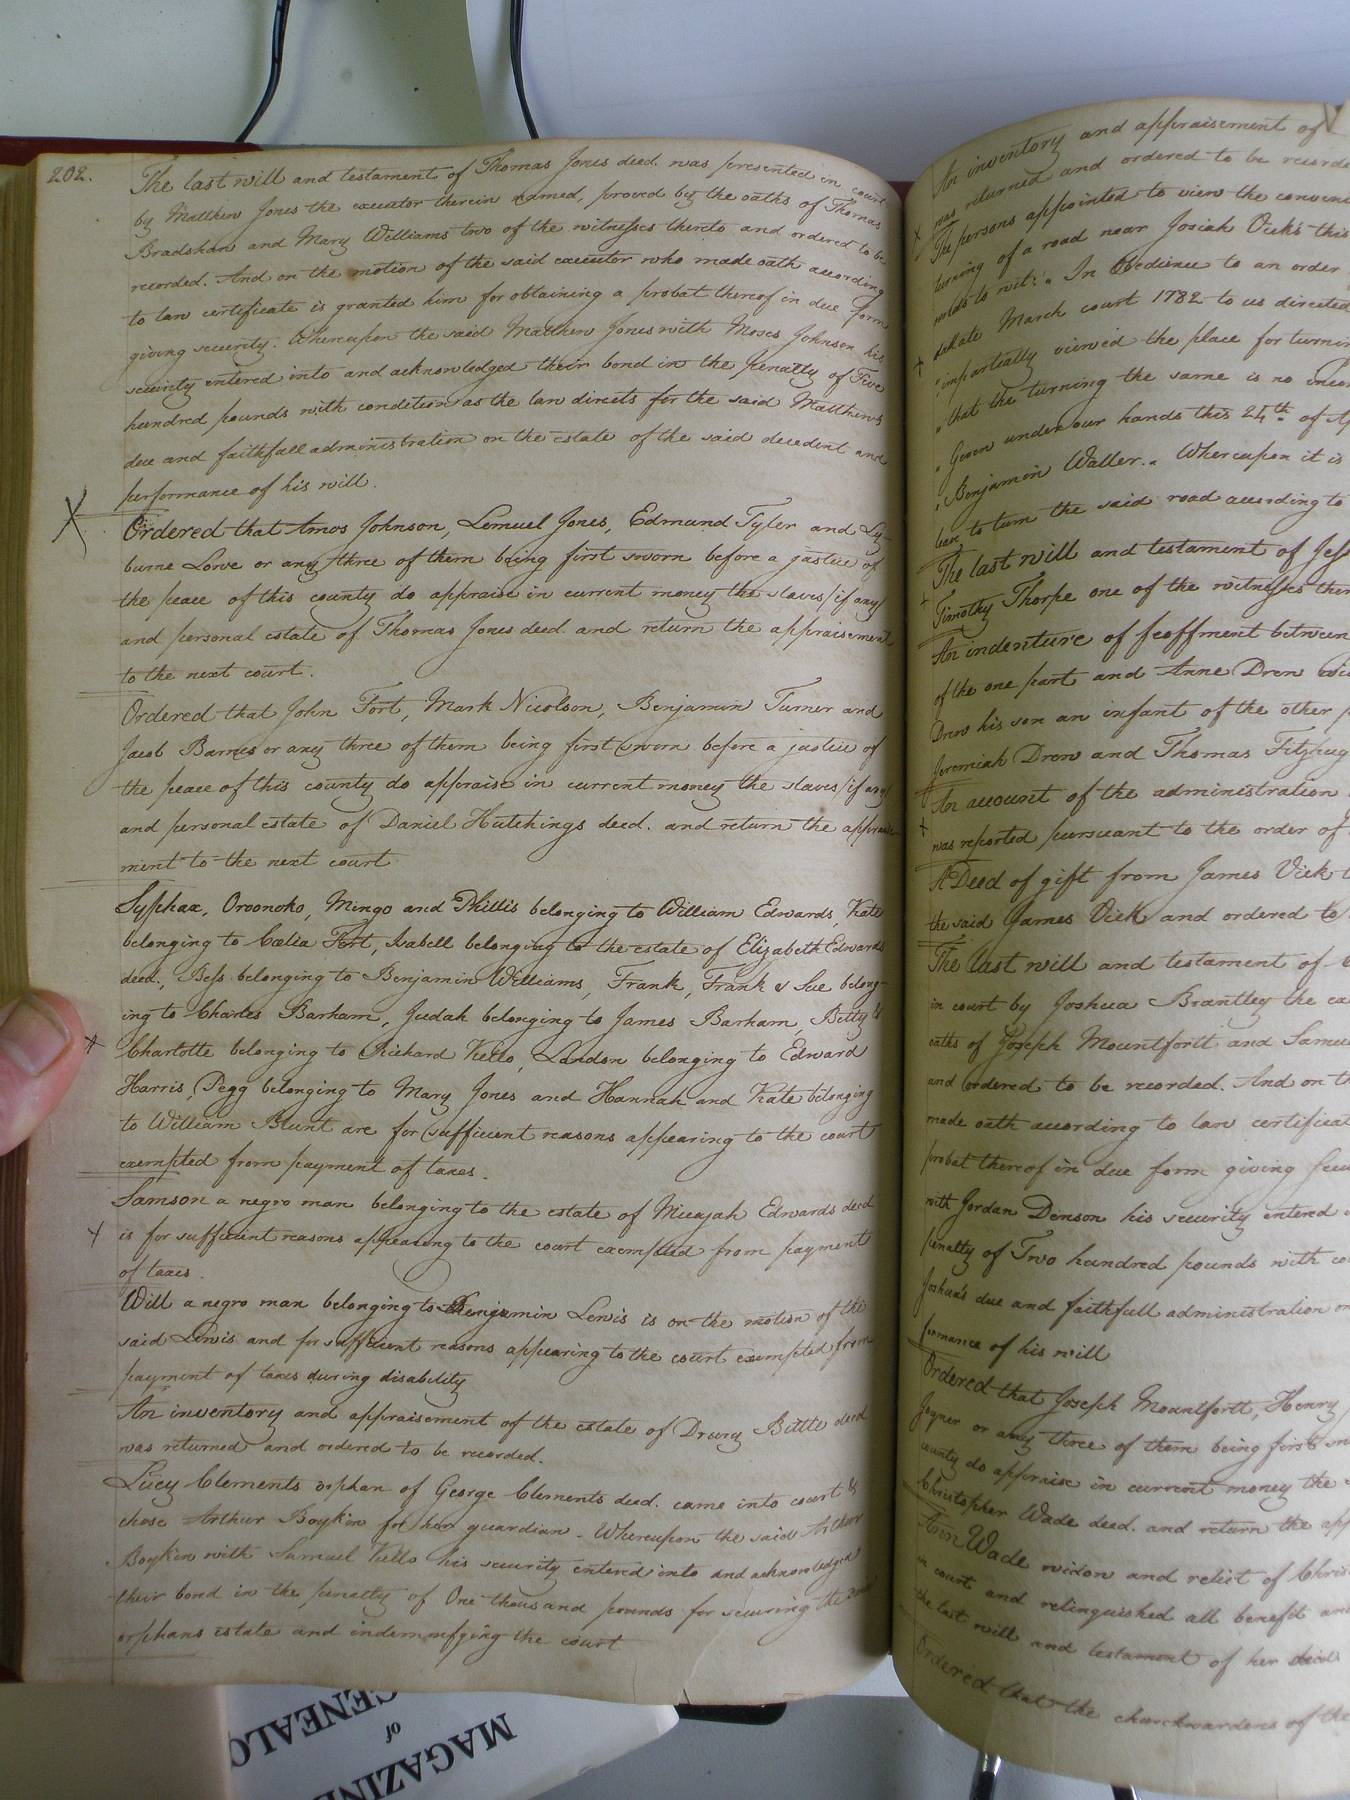 202.
The last will and testament of Thomas Jones decd. was presented in court
by Matthew Jones the executor therein named, proved by the oaths of Thomas
Bradshaw and Mary Williams two of the witnesses thereto and ordered to be
recorded. And on the motion of the said executor who made oath according
to law certificate is granted him for obtaining a probat thereof in due form
giving security. Whereupon the said Matthew Jones with Moses Johnson his
security entered into and acknowledged their bond in the penalty of Five
hundred pounds with condition as the law directs for the said Matthews
due and faithfull administration on the estate of the said decedent and
performance of his will.
Ordered that Amos Johnson, Lemuel Jones, Edmund Tyler and Ly-
burne Lowe or any three of them being first sworn before a justice of
the peace of this county do appraise in current money the slaves (if any)
and personal estate of Thomas Jones decd. and return the appraisement
to the next court.
Ordered that John Fort, Mark Nicolson, Benjamin Turner and
Jacob Barnes or any three of them being first sworn before a justice of
the peace of this county do appraise in current money the slaves (if any
and personal estate of Daniel Hutchings decd. and return the appraise
ment to the next court
Syphax, Oroonoko, Mingo and Phillis belonging to William Edwards, Kate
belonging to Cœlia Fort, Isabell belonging to the estate of Elizabeth Edwards
decd., Bess belonging to Benjamin Williams, Frank, Frank & Sue belong-
ing to Charles Barham, Judah belonging to James Barham, Betty &
Charlotte belonging to Richard Kello, London belonging to Edward
Harris, Pegg belonging to Mary Jones and Hannah and Kate belonging
to William Blunt are for sufficient reasons appearing to the court
exempted from payment of taxes.
Samson a negro man belonging to the estate of Micajah Edwards decd
is for sufficient reasons appearing to the court exempted from payment
of taxes.
Will a negro man belonging to Benjamin Lewis is on the motion of the
said Lewis and for sufficient reasons appearing to the court exempted from
payment of taxes during disability
An inventory and appraisement of the estate of Drury Bittle decd
was returned and ordered to be recorded.
Lucy Clements orphan of George Clements decd. came into court &
chose Arthur Boykin for her guardian. Whereupon the said Arthur
Boykin with Samuel Kello his security entered into and acknowledged
their bond in the penalty of One thousand pounds for securing the said
orphans estate and indemnifying the court
An inventory and appraisement of
was returned and ordered to be recorde
The persons appointed to view the conveni
turning of a road near Josiah Vick's this
words to wit: " In Obedience to an order
dellate March court 1782 to us directed
"impartially viewed the place for turnin
"that the turning the same is no incon
"Given under our hands this 24th of Ap
"Benjamin Waller." Whereupon it is
leave to turn the said road according to
The last will and testament of Jess
Timothy Thorpe one of the witnesses ther
An indenture of feoffment between
of the one part and Anne Drew
Drew his son an infant of the other p
Jeremiah Drew and Thomas Fitzhug
An account of the administration
was reported pursuant to the order of
A Deed of gift from James Vick t
the said James Vick and ordered to
The last will and testament of
in court by Joshua Brantley the
oaths of Joseph Mountfortt and Samu
and ordered to be recorded. And on th
made oath according to law certificat
probat thereof in due form giving secu
with Jordan Denson his security entered
penalty of Two hundred pounds with co
Joshua's due and faithfull administration on
formance of his will
Ordered that Joseph Mountfortt, Henry
Joyner or any three of them being first sw
county do appraise in current money the
Christopher Wade decd. and return the app
Ann Wade widow and relict of Chris
in court and relinquished all benefit
the last will and testament of her
Ordered that the churchwardens of the
MAGAZINE
of
GENEALO